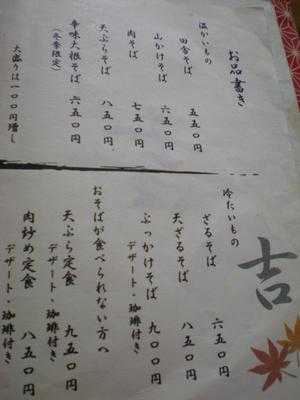 お品書き
温かいもの
田舎そば 五五〇円
山かけそば 六五〇円
肉そば 七五〇円
天ぷらそば 八五〇円
辛味大根そば 六五〇円
(冬季限定)
大盛りは一〇〇円増し
冷たいもの
ざるそば 六五〇円
天ざるそば 八五〇円
ぶっかけそば 九〇〇円
デザート・珈琲付き
おそばが食べられない方へ
天ぷら定食 九五〇円
デザート・珈琲付き
肉炒め定食 八五〇円
デザート・珈琲付き
吉